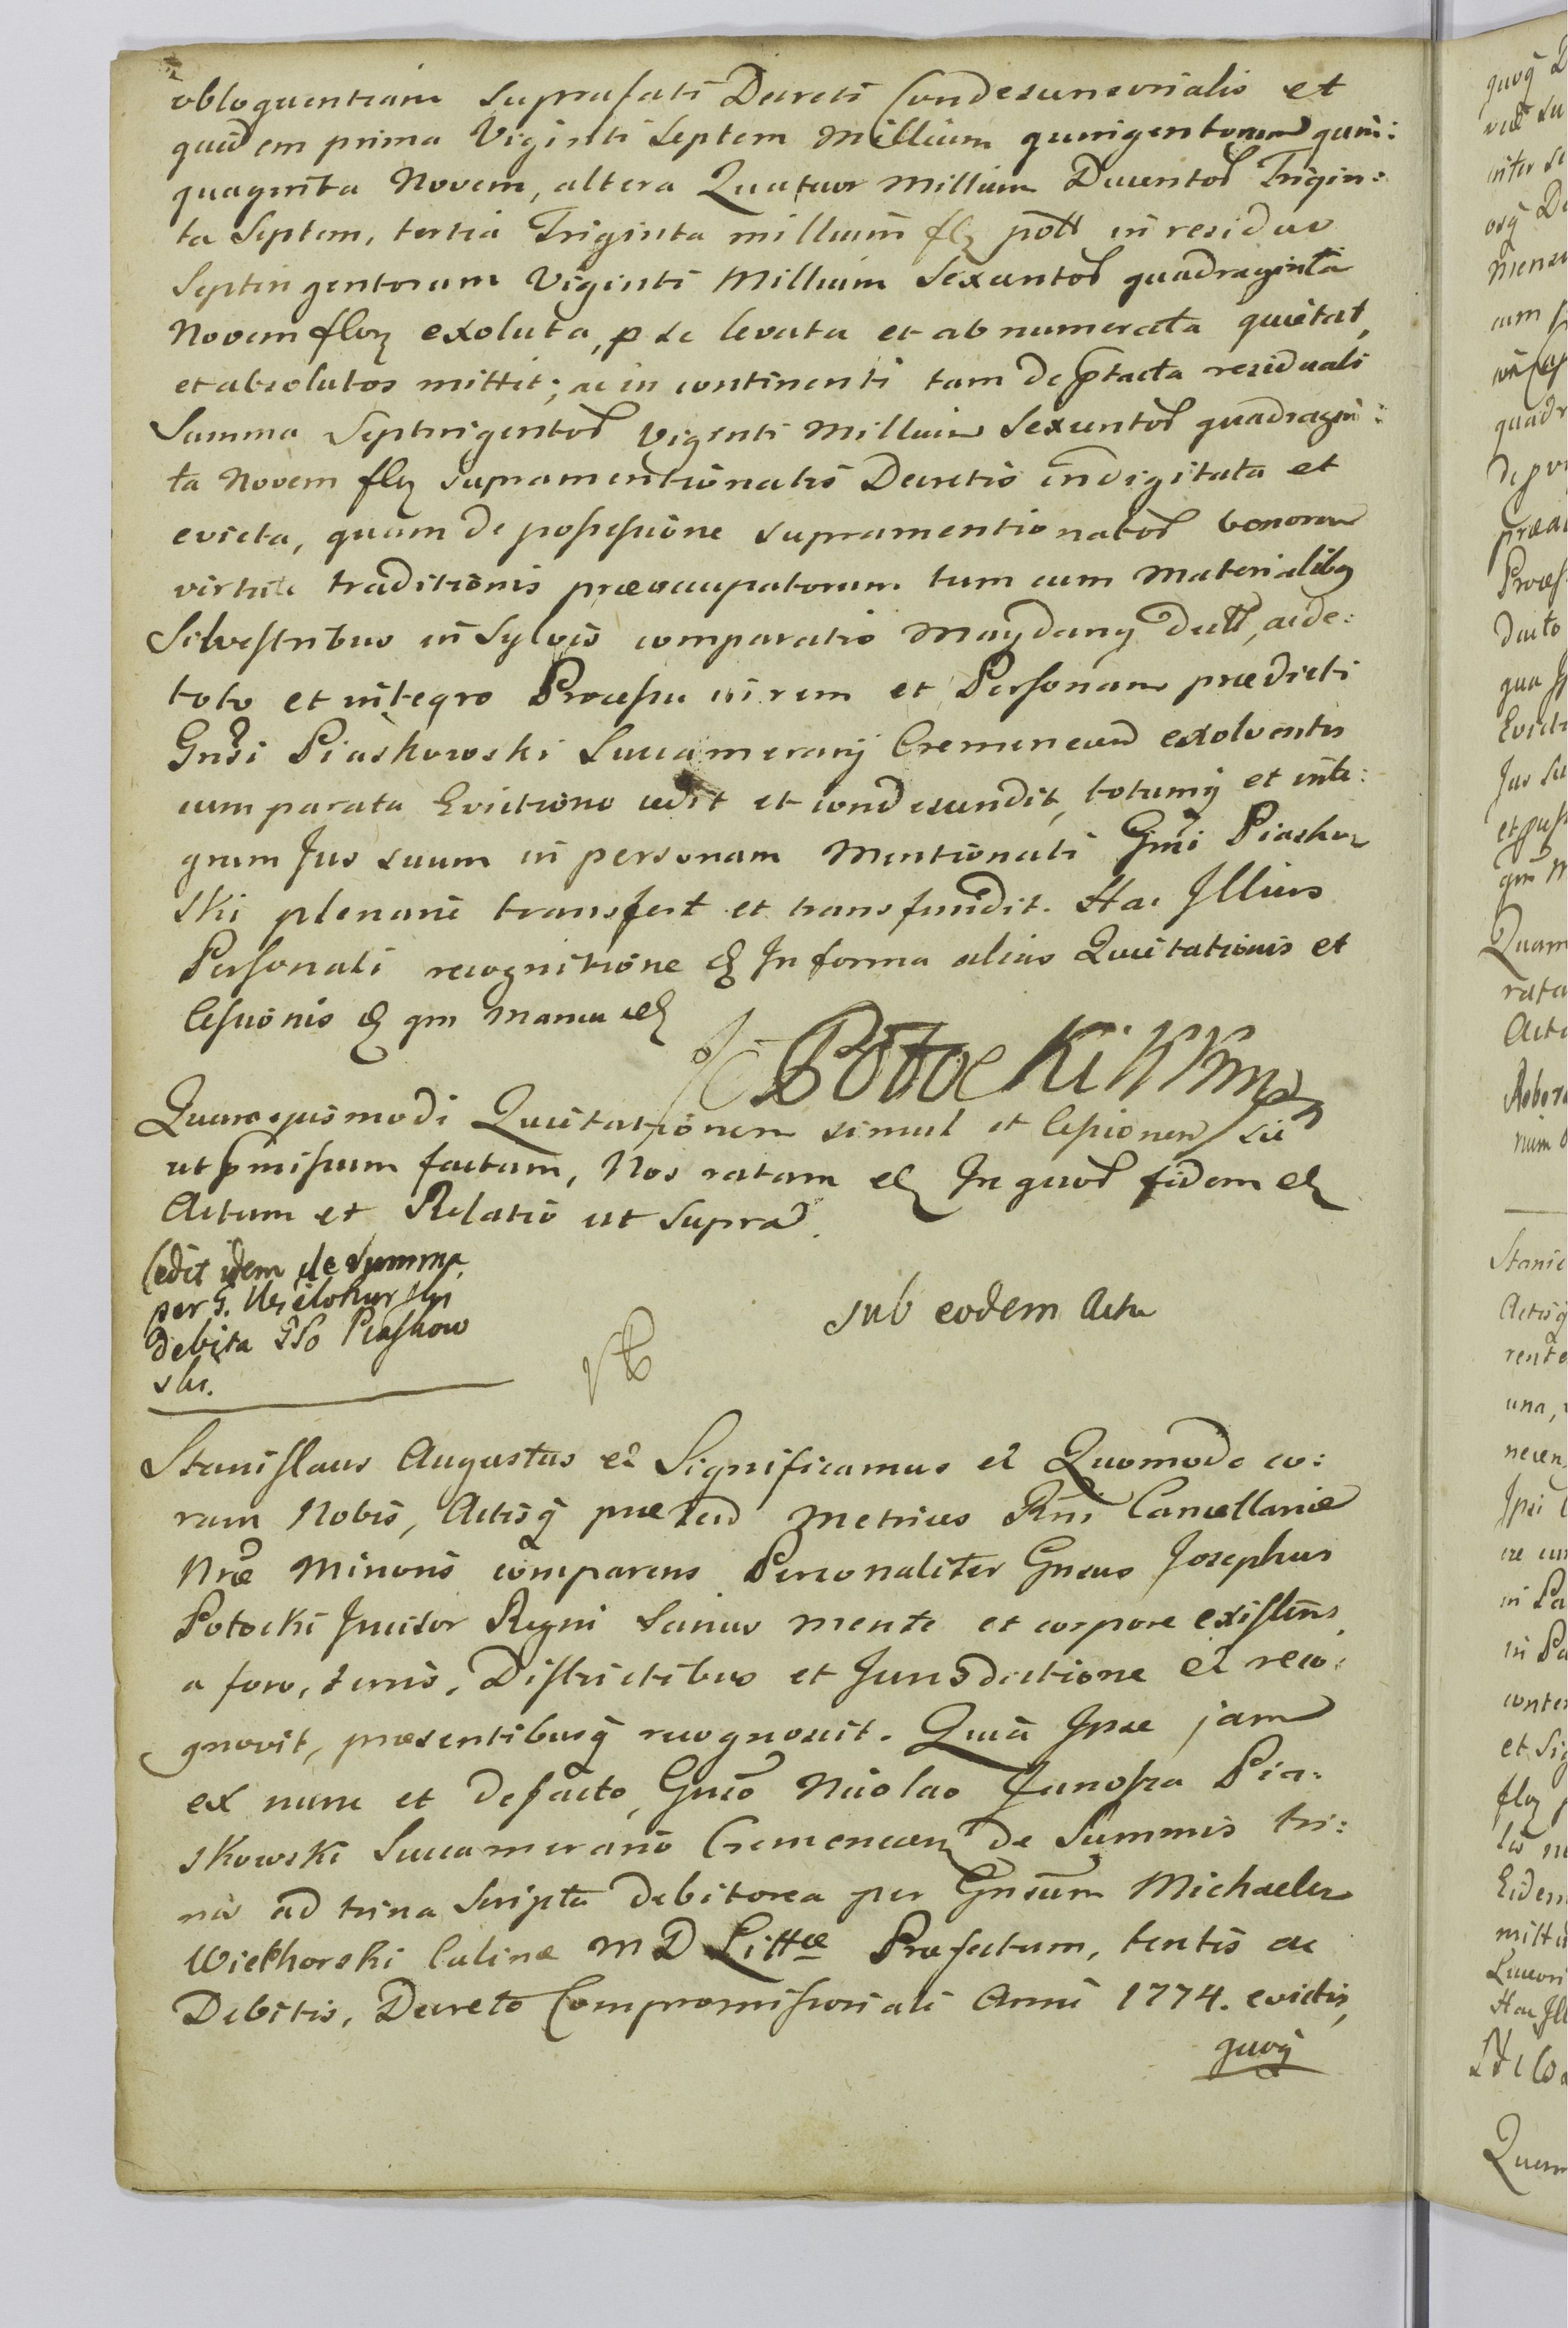 obloquentiam suprafati Decreti Condescensorialis et
quidem prima Viginti Septem Millium quingentorum quin:
quaginta Novem, altera Quatuor Millium Ducentor Trigin:
ta Septem, tertia Triginta millium flz poll in residuo
Septingentorum Viginti Millium Sexcentor quadraginta
Novem flor exoluta, p se levata et abnumerata quietat,
et absolutos mittit; ac in continenti tam de ptacta residuali
Summa Septingentor Viginti Millium Sexcentor quadragin:
ta Novem flz supramentionatis Decretis indigitata et
evicta, quam de possessione supramentionator bonorum
virtute traditionis præoccupatorum tum cum Materialibq
Silvestribus in Sylvis comparatis Maydany dictt, ac de:
toto et integro Processu in rem et Personam prædicti
Gnsi Piaskowski Succamerarij Cremenecen exolventis
cum parata Evictione cedit et condescendit, totumq et inte:
grum Jus suum in personam Mentionati Gnsi Piasko
ski plenarie transfert et transfundit. Hac Illius
Personali recognitione & In forma alias Quietationis et
Cessionis & qm manu &
Potocki KKmp
Quam ejusmodi Quietationem simul et Cessionem sic
ut pmissum factam, Nos ratam & In quor fidem &
Actum et Relatio ut Supra.
Cedit idem de Summa
per G. Wielohurski
debita GSo Piaskow
ski.
sub eodem Actu
Stanislaus Augustus & Significamus & Quomodo co:
ram Nobis, Actisq præsend Metrices Rni Cancellariæ
Nræ Minoris comparens Personaliter Gnsus Josephus
Potocki Incisor Regni Sanus mente et corpore existens,
a foro, terris, Districtibus et Jurisdictione & reco:
gnovit, præsentibusq recognoscit. Quia Ipse jam
ex nunc et defacto, Gnso Nicolao Junosza Pia:
skowski Succamerario Cremenecen de Summis tri:
nis ad trina Scripta debitorea per Gnsum Michaelem
Wielhorski Culinæ M D Littæ Præfectum, tentis ac
Debitis, Decreto Compromissoriali Anni 1774. evictis,
quoq